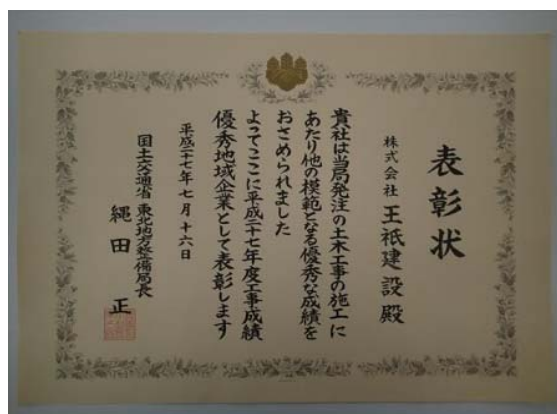 表彰状
株式会社 王祇建設殿
貴社は当局発注の土木工事の施工に
あたり他の模範となる優秀な成績を
おさめられました
よってここに平成二十七年度工事成績
優秀地域企業として表彰します
平成二十七年七月十六日
国土交通省 東北地方整備局長
縄田 正